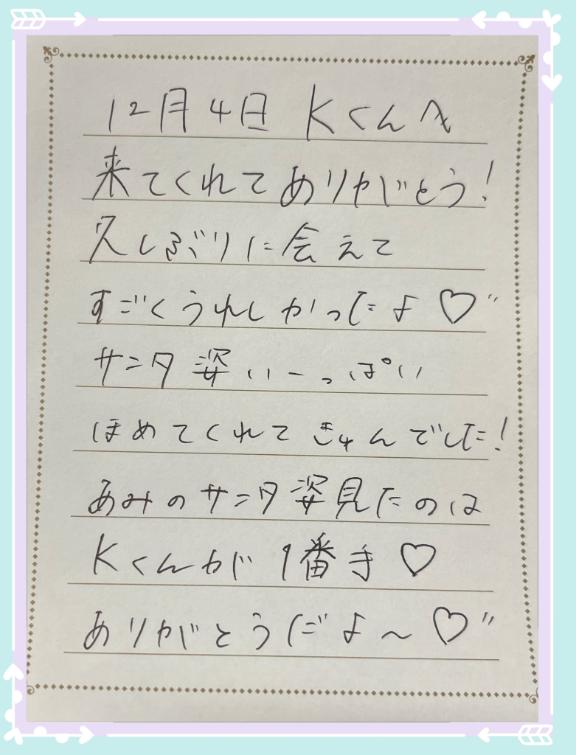 12月4日 Kくんへ
来てくれてありがとう!
久しぶりに会えて
すごくうれしかったよ♡"
サンタ姿いーっぱい
ほめてくれてきゅんでした!
あみのサンタ姿見たのは
Kくんが1番手♡
ありがとうだよ〜♡"